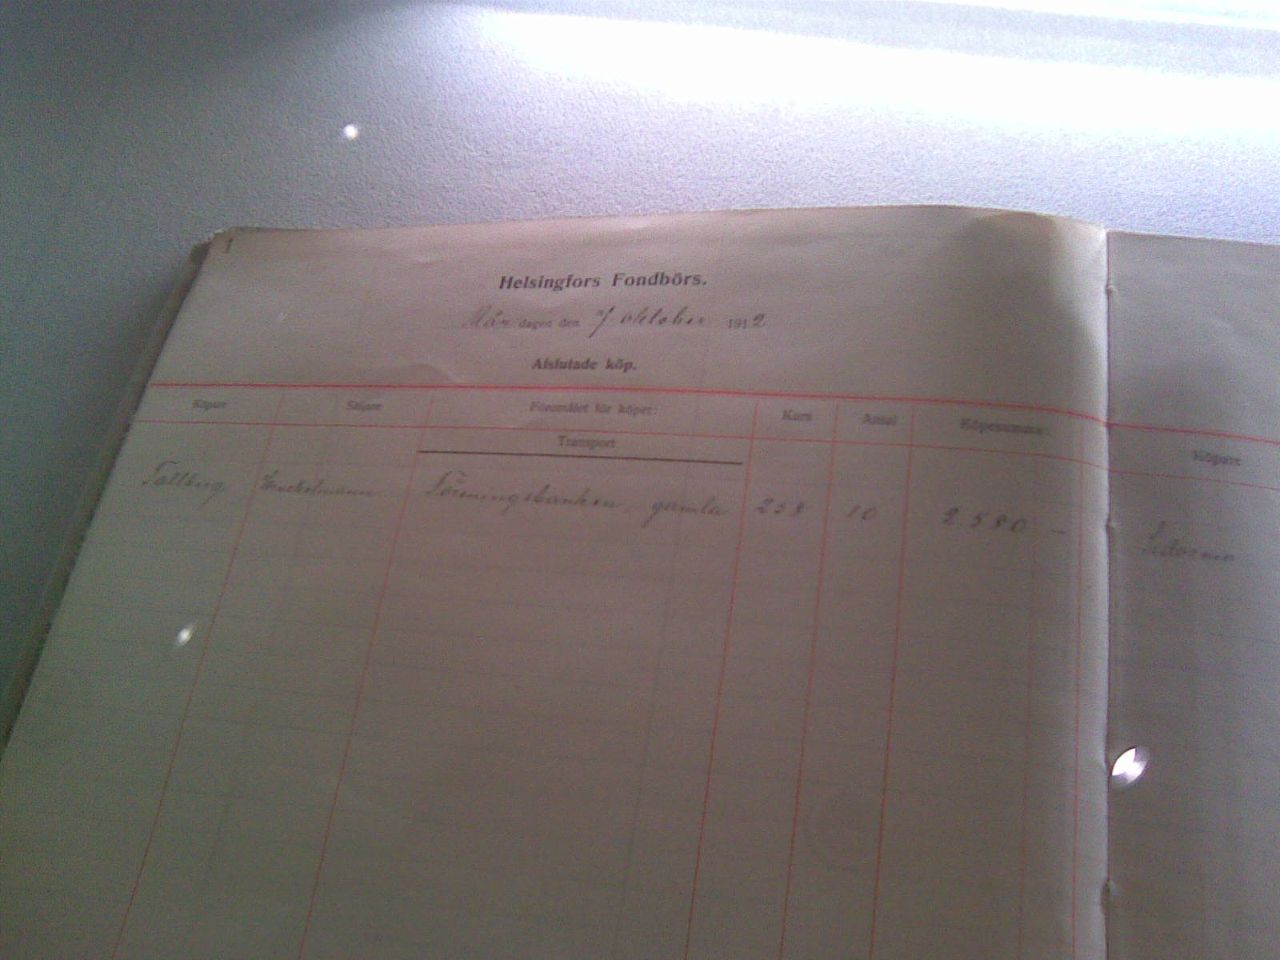 1
Helsingfors Fondbörs.
Måndagen den 7 oktober 1912
Afslutade köp.
Köpare Säljare Föremålet för köpet: Kurs Antal Köpesumma
Transport
Tallberg Föreningsbanken, gamla 258 10 2580 —
Köpare